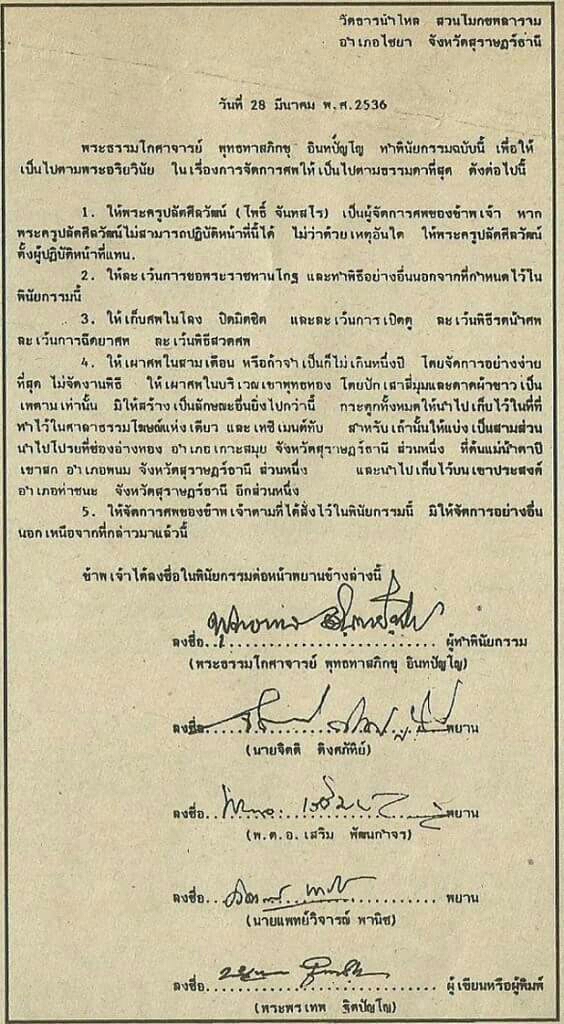 วัดธารน้ำไหล สวนโมกขพลาราม
อำเภอไชยา จังหวัดสุราษฎร์ธานี
วันที่ 28 มีนาคม พ.ศ.2536
พระธรรมโกศาจารย์ พุทธทาสภิกขุ อินทปัญโญ ทำพินัยกรรมฉบับนี้ เพื่อให้
เป็นไปตามพระอริยวินัย ในเรื่องการจัดการศพให้เป็นไปตามธรรมดาที่สุด ดังต่อไปนี้
1. ให้พระครูปลัดศีลวัฒน์ (โพธิ์ จันทสโร) เป็นผู้จัดการศพของข้าพเจ้า หาก
พระครูปลัดศีลวัฒน์ไม่สามารถปฏิบัติหน้าที่นี้ได้ ไม่ว่าด้วยเหตุอันใด ให้พระครูปลัดศีลวัฒน์
ตั้งผู้ปฏิบัติหน้าที่แทน.
2. ให้ละเว้นการขอพระราชทานโกฐ และทำพิธีอย่างอื่นนอกจากที่กำหนดไว้ใน
พินัยกรรมนี้
3. ให้เก็บศพในโลง ปิดมิดชิด และละเว้นการเปิดดู ละเว้นพิธีรดน้ำศพ
ละเว้นการฉีดยาศพ ละเว้นพิธีสวดศพ
4. ให้เผาศพในสามเดือน หรือถ้าจำเป็นก็ไม่เกินหนึ่งปี โดยจัดการอย่างง่าย
ที่สุด ไม่จัดงานพิธี ให้เผาศพในบริเวณเขาพุทธทอง โดยปักเสาสี่มุมและดาดผ้าขาวเป็น
เพดานเท่านั้น มิให้สร้างเป็นลักษณะอื่นยิ่งไปกว่านี้ กระดูกทั้งหมดให้นำไปเก็บไว้ในที่ที่
ทำไว้ในศาลาธรรมโฆษณ์แห่งเดียว และเทซีเมนต์ทับ สำหรับเถ้านั้นให้แบ่งเป็นสามส่วน
นำไปโปรยที่ช่องอ่างทอง อำเภอเกาะสมุย จังหวัดสุราษฎร์ธานี ส่วนหนึ่ง ที่ต้นแม่น้ำตาปี
เขาสก อำเภอพนม จังหวัดสุราษฎร์ธานี ส่วนหนึ่ง และนำไปเก็บไว้บนเขาประสงค์
อำเภอท่าชนะ จังหวัดสุราษฎร์ธานี อีกส่วนหนึ่ง
5. ให้จัดการศพของข้าพเจ้าตามที่ได้สั่งไว้ในพินัยกรรมนี้ มิให้จัดการอย่างอื่น
นอกเหนือจากที่กล่าวมาแล้วนี้
ข้าพเจ้าได้ลงชื่อในพินัยกรรมต่อหน้าพยานข้างล่างนี้
ลงชื่อ พุทธทาส อินทปัญโญ ผู้ทำพินัยกรรม
(พระธรรมโกศาจารย์ พุทธทาสภิกขุ อินทปัญโญ)
ลงชื่อ พยาน
(นายจิตติ ติงศภัทิย์)
ลงชื่อ พยาน
(พ.ต.อ.เสริม พัฒนกำจร)
ลงชื่อ พยาน
(นายแพทย์วิจารณ์ พานิช)
ลงชื่อ ผู้เขียนหรือผู้พิมพ์
(พระพรเทพ ฐิตปัญโญ)